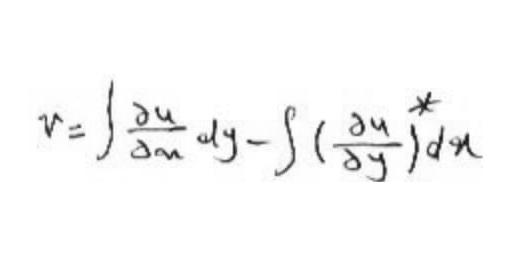 v = ∫ ∂u/∂x dy - ∫ (∂u/∂y)* dx